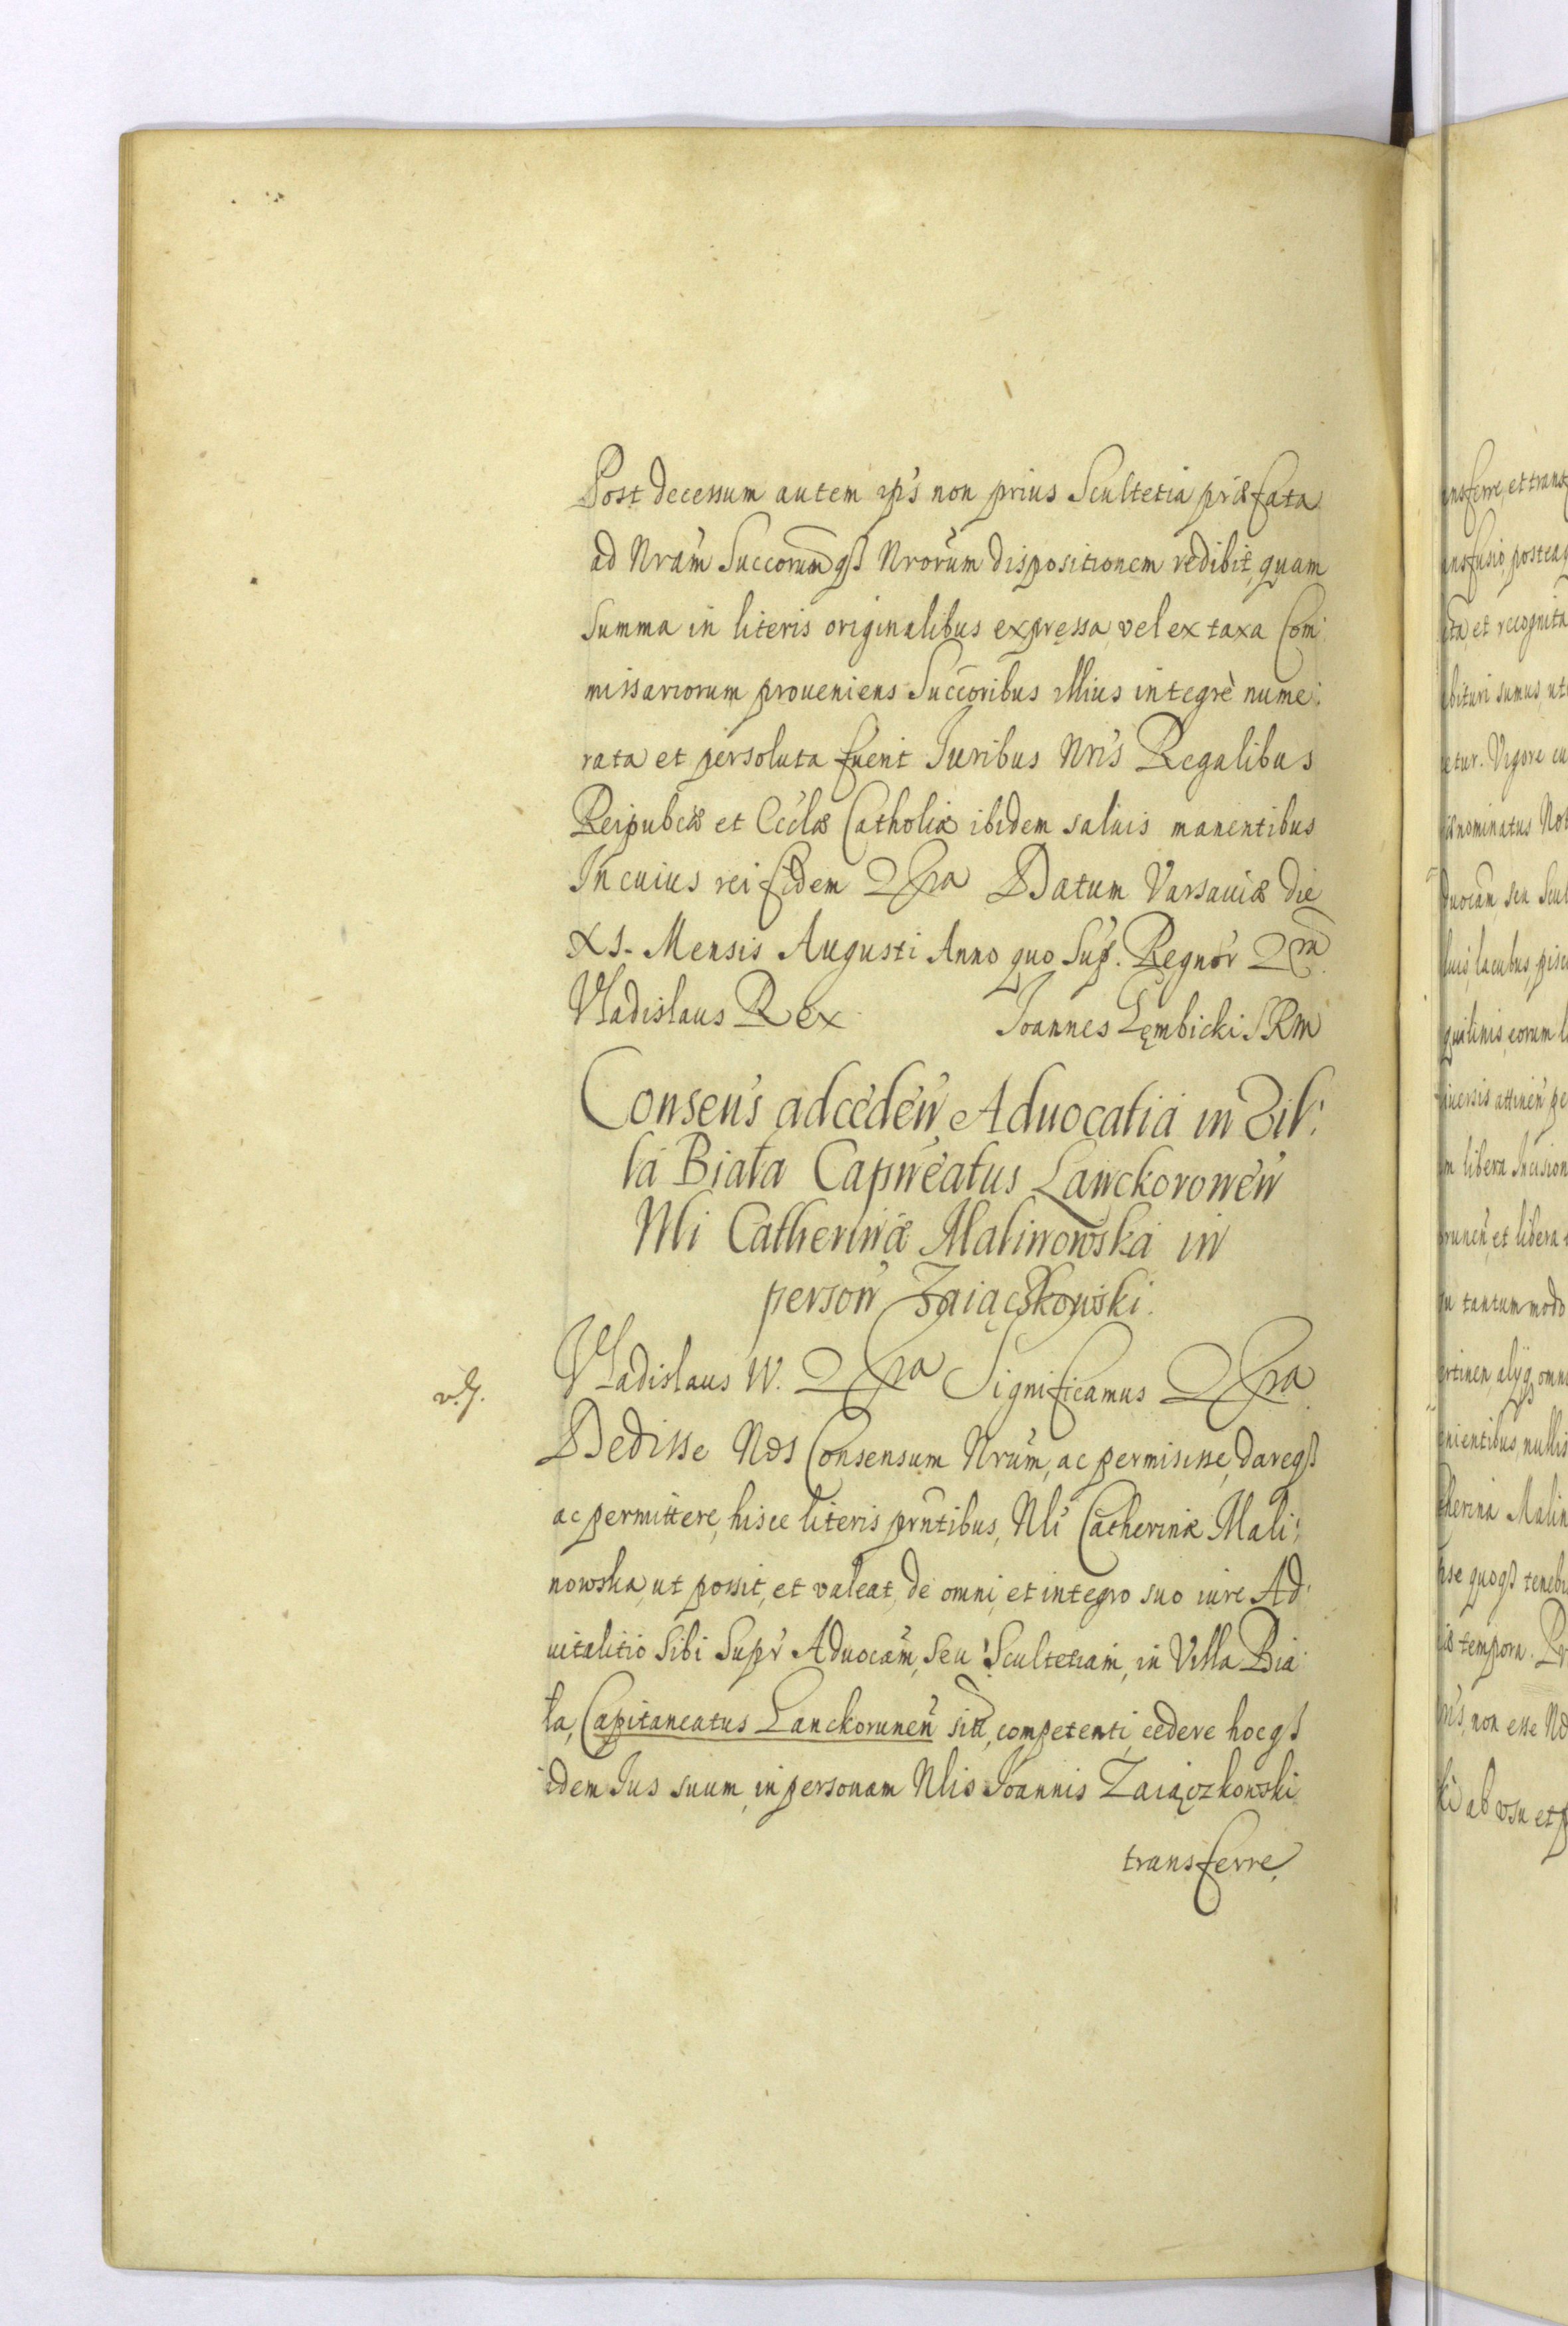 Post decessum autem ips non prius Scultetia præfata
ad Nram Succorumqꝫ Nrorum dispositionem redibit, quam
summa in literis originalibus expressa, vel ex taxa Com:
missariorum proueniens Succoribus illius integrè nume:
rata et persoluta fuerit Juribus Nris Regalibus
Reipubcæ et Cclæ Catholiæ ibidem saluis manentibus
In cuius rei fidem Datum Varsauiæ die
XI. Mensis Augusti Anno quo Sup. Regnor
Vladislaus Rex Joannes Lęmbicki SRM
Consens ad cedeń Aduocatia in Vil:
la Biała Capneatus Lanckoroneń
Nli Catherinæ Malinowska in
person Zaiączkowski.
v.g. Vladislaus IV. Significamus
Dedisse Nos Consensum Nrum, ac permisisse, dareqꝫ
ac permittere, hisce literis prntibus, Nli Catherinæ Mali:
nowska, ut possit, et valeat, de omni, et integro suo iure Ad:
uitalitio sibi supr Aduocam, seu Scultetiam, in Villa Bia:
ła, Capitaneatus Lanckoruneń sit, competenti, cedere hocqꝫ
idem Jus suum, in personam Nlis Joannis Zaiączkowski
transferre,
ansferre, et transf
ansfusio, posteaq
ta, et recognita
bituri sumus, ut
etur. Vigore eu
ænominatus Nob
duocam, seu Scul
luis, lacubus, pisc
quilinis, eorum l
iuersis attineń pe
m libera Incision
runeń, et libera
u tantummodo
ertinen, alijqꝫ omn
enientibus, nullis
therina Malin
pse quoqꝫ tenebi
is tempora. Pr
ps, non esse No
ki ab vsu et p